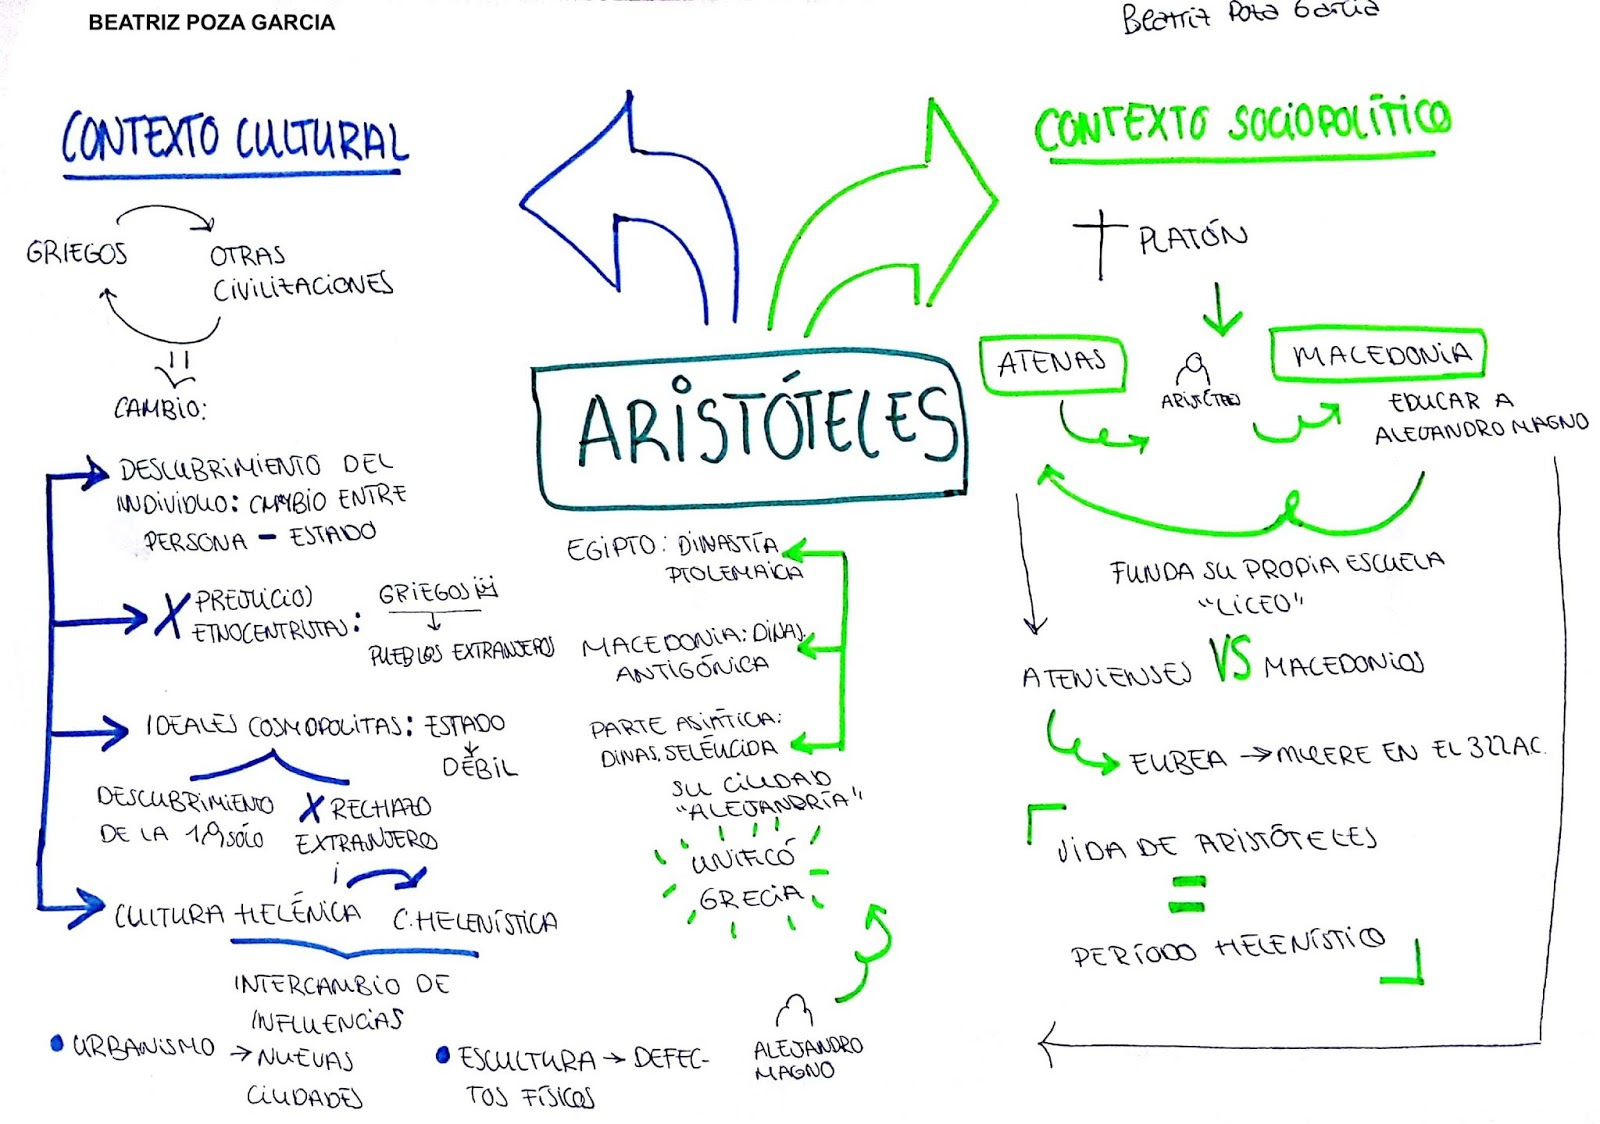 BEATRIZ POZA GARCIA
Beatriz Poza Garcia
CONTEXTO CULTURAL
GRIEGOS
OTRAS
CIVILIZACIONES
CAMBIO:
DESCUBRIMIENTO DEL
INDIVIDUO: CAMBIO ENTRE
PERSONA - ESTADO
X PREJUICIOS
ETNOCENTRISTAS:
GRIEGOS
PUEBLOS EXTRANJEROS
IDEALES COSMOPOLITAS: ESTADO
DÉBIL
DESCUBRIMIENTO
DE LA
X RECHAZO
EXTRANJERO
CULTURA HELÉNICA
C. HELENÍSTICA
INTERCAMBIO DE
INFLUENCIAS
• URBANISMO → NUEVAS
CIUDADES
• ESCULTURA → DEFEC-
TOS FÍSICOS
ARISTÓTELES
EGIPTO: DINASTÍA
PTOLEMAICA
MACEDONIA: DINAS.
ANTIGÓNICA
PARTE ASIÁTICA:
DINAS. SELÉUCIDA
SU CIUDAD
"ALEJANDRÍA"
UNIFICÓ
GRECIA
ALEJANDRO
MAGNO
CONTEXTO SOCIOPOLÍTICO
PLATÓN
ATENAS
ARISTÓTELES
MACEDONIA
EDUCAR A
ALEJANDRO MAGNO
FUNDA SU PROPIA ESCUELA
"LICEO"
ATENIENSES VS MACEDONIOS
EUBEA → MUERE EN EL 322AC.
VIDA DE ARISTÓTELES
=
PERÍODO HELENÍSTICO